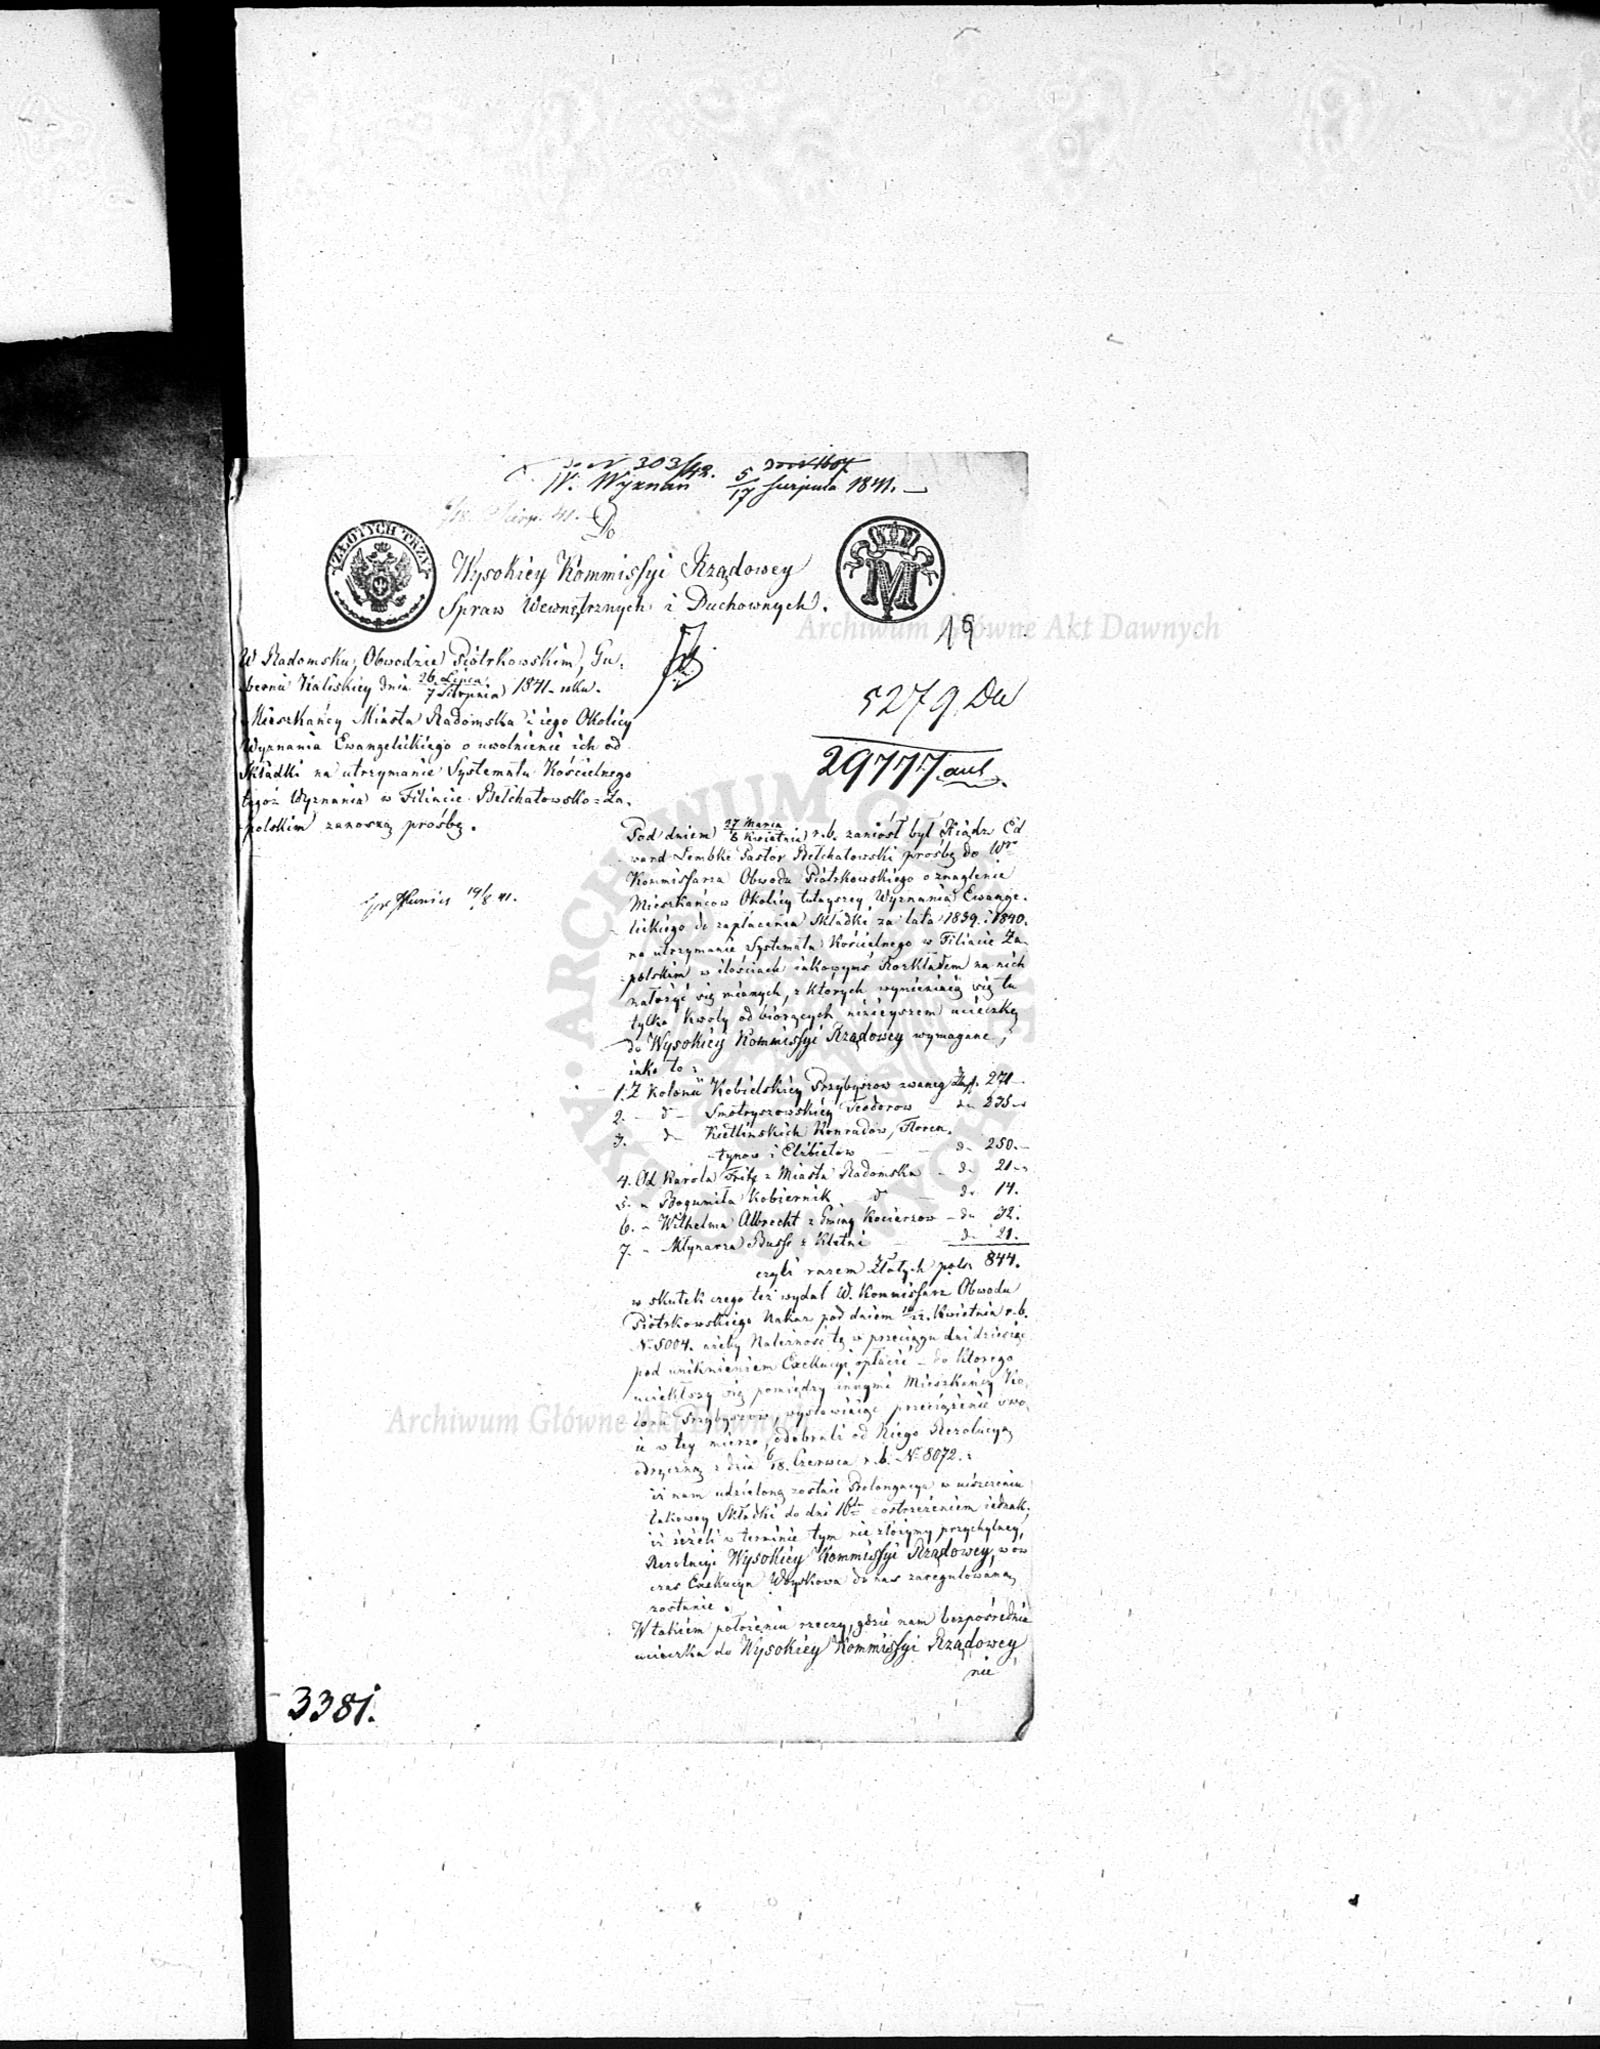 do N 303/42.
W. Wyznań 5/17 Sierpnia 1841. —
Do
ZŁOTYCH TRZY
Wysokiey Kommissyi Rządowey
Spraw Wewnętrznych i Duchownych.
M
19
W Radomsku, Obwodzie Piotrkowskim, Gu-
bernii Kaliskiey dnia 26 Lipca/7 Sierpnia 1841. roku.
Mieszkańcy Miasta Radomska i iego Okolicy
Wyznania Ewangelickiego o uwolnienie ich od
Składki na utrzymanie Systematu Kościelnego
tegoż Wyznania w Filiacie Bełchatowsko=Za-
polskim zanoszą prośbę.
5279
29777
19/8 41.
Pod dniem 27 Marca/8 Kwietnia r.b. zaniósł był Xiądz Ed
ward Lembke Pastor Bełchatowski prośbę do Wgo
Kommissarza Obwodu Piotrkowskiego o znaglenie
Mieszkańców Okolicy tuteyszey Wyznania Ewange-
lickiego do zapłacenia Składki za lata 1839. i 1840.
na utrzymanie Systematu Kościelnego w Filiacie Za-
polskim w ilościach iakowymś Rozkładem na nich
nałożyć się mianych, z których wymieniaią się tu
tylko kwoty od biorących ninieyszem ucieczkę
do Wysokiey Kommissyi Rządowey wymagane,
iako to:
1. Z Kolonii Kobielskiey Przybyszow zwaney Złp. 271 —
2. — do — Smotryszowskiey Teodorow — do 235 —
3. — do Kietlinskich Konradow, Floren-
tynow i Elżbietow — — do 250. —
4. Od Karola Fritz z Miasta Radomska — do 21 —
5. „ Bogumiła Kobiernik do — do 14.
6. „ Wilhelma Albrecht z Gminy Kocierzow — do 32.
7. „ Młynarza Busse z Kletni — do 21.
czyli razem Złotych pols: 844.
w skutek czego też wydał W. Kommissarz Obwodu
Piotrkowskiego Nakaz pod dniem 10/22. Kwietnia r.b.
No 5004. ażeby Należność tę w przeciągu dni dziesięć
pod uniknieniem Exekucyi opłacić — do którego
uciekłszy się pomiędzy innymi Mieszkańcy Ko-
lonii Przybyszow, wystawiaiąc przeciążenie swo-
ie w tey mierze, odebrali od Niego Rezolucyą
odręczną z dnia 6/18. Czerwca r.b. No 8072.:
iż nam udzieloną zostaie Prolongacya w uiszczeniu
takowey Składki do dni 10ciu z ostrzeżeniem iednak,
iż ieżeli w terminie tym nie złożymy przychylney
Rezolucyi Wysokiey Kommissyi Rządowey, wów
czas Exekucya Woyskowa do nas zaregulowaną
zostanie.
W takiem położeniu rzeczy, gdzie nam bezpośrednia
ucieczka do Wysokiey Kommissyi Rządowey
nie
3381.
Archiwum Główne Akt Dawnych
Archiwum Główne Akt Dawnych